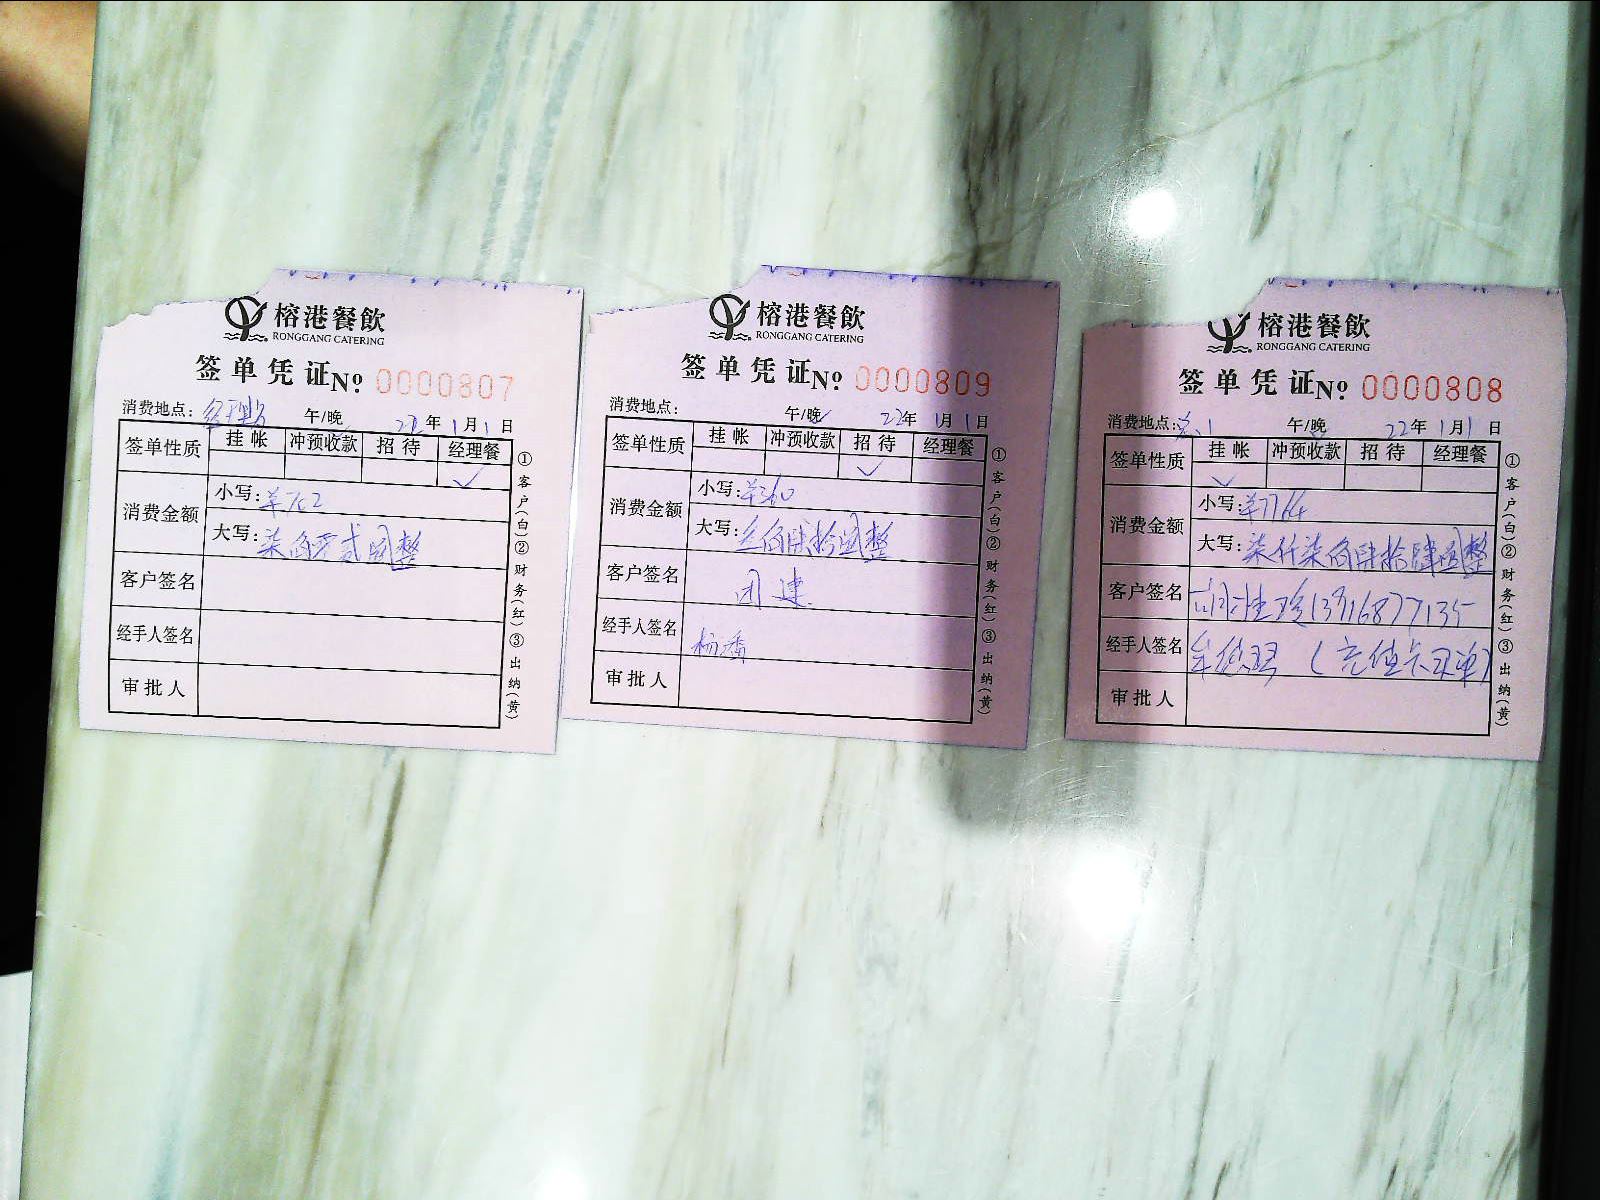 榕港餐飲
RONGGANG CATERING
签单凭证No 0000807
消费地点: 午/晚 22年1月1日
签单性质 挂帐 冲预收款 招待 经理餐
消费金额
小写:羊702
大写:柒佰零贰圆整
客户签名
经手人签名
审批人
①客户(白)②财务(红)③出纳(黄)
榕港餐飲
RONGGANG CATERING
签单凭证No 0000809
消费地点: 午/晚 22年1月1日
签单性质 挂帐 冲预收款 招待 经理餐
消费金额
小写:羊360
大写:叁佰陆拾圆整
客户签名 团建
经手人签名 杨
审批人
①客户(白)②财务(红)③出纳(黄)
榕港餐飲
RONGGANG CATERING
签单凭证No 0000808
消费地点: 午/晚 22年1月1日
签单性质 挂帐 冲预收款 招待 经理餐
消费金额
小写:羊7764
大写:柒仟柒佰陆拾肆圆整
客户签名 13916877135
经手人签名 (充值卡买单)
审批人
①客户(白)②财务(红)③出纳(黄)